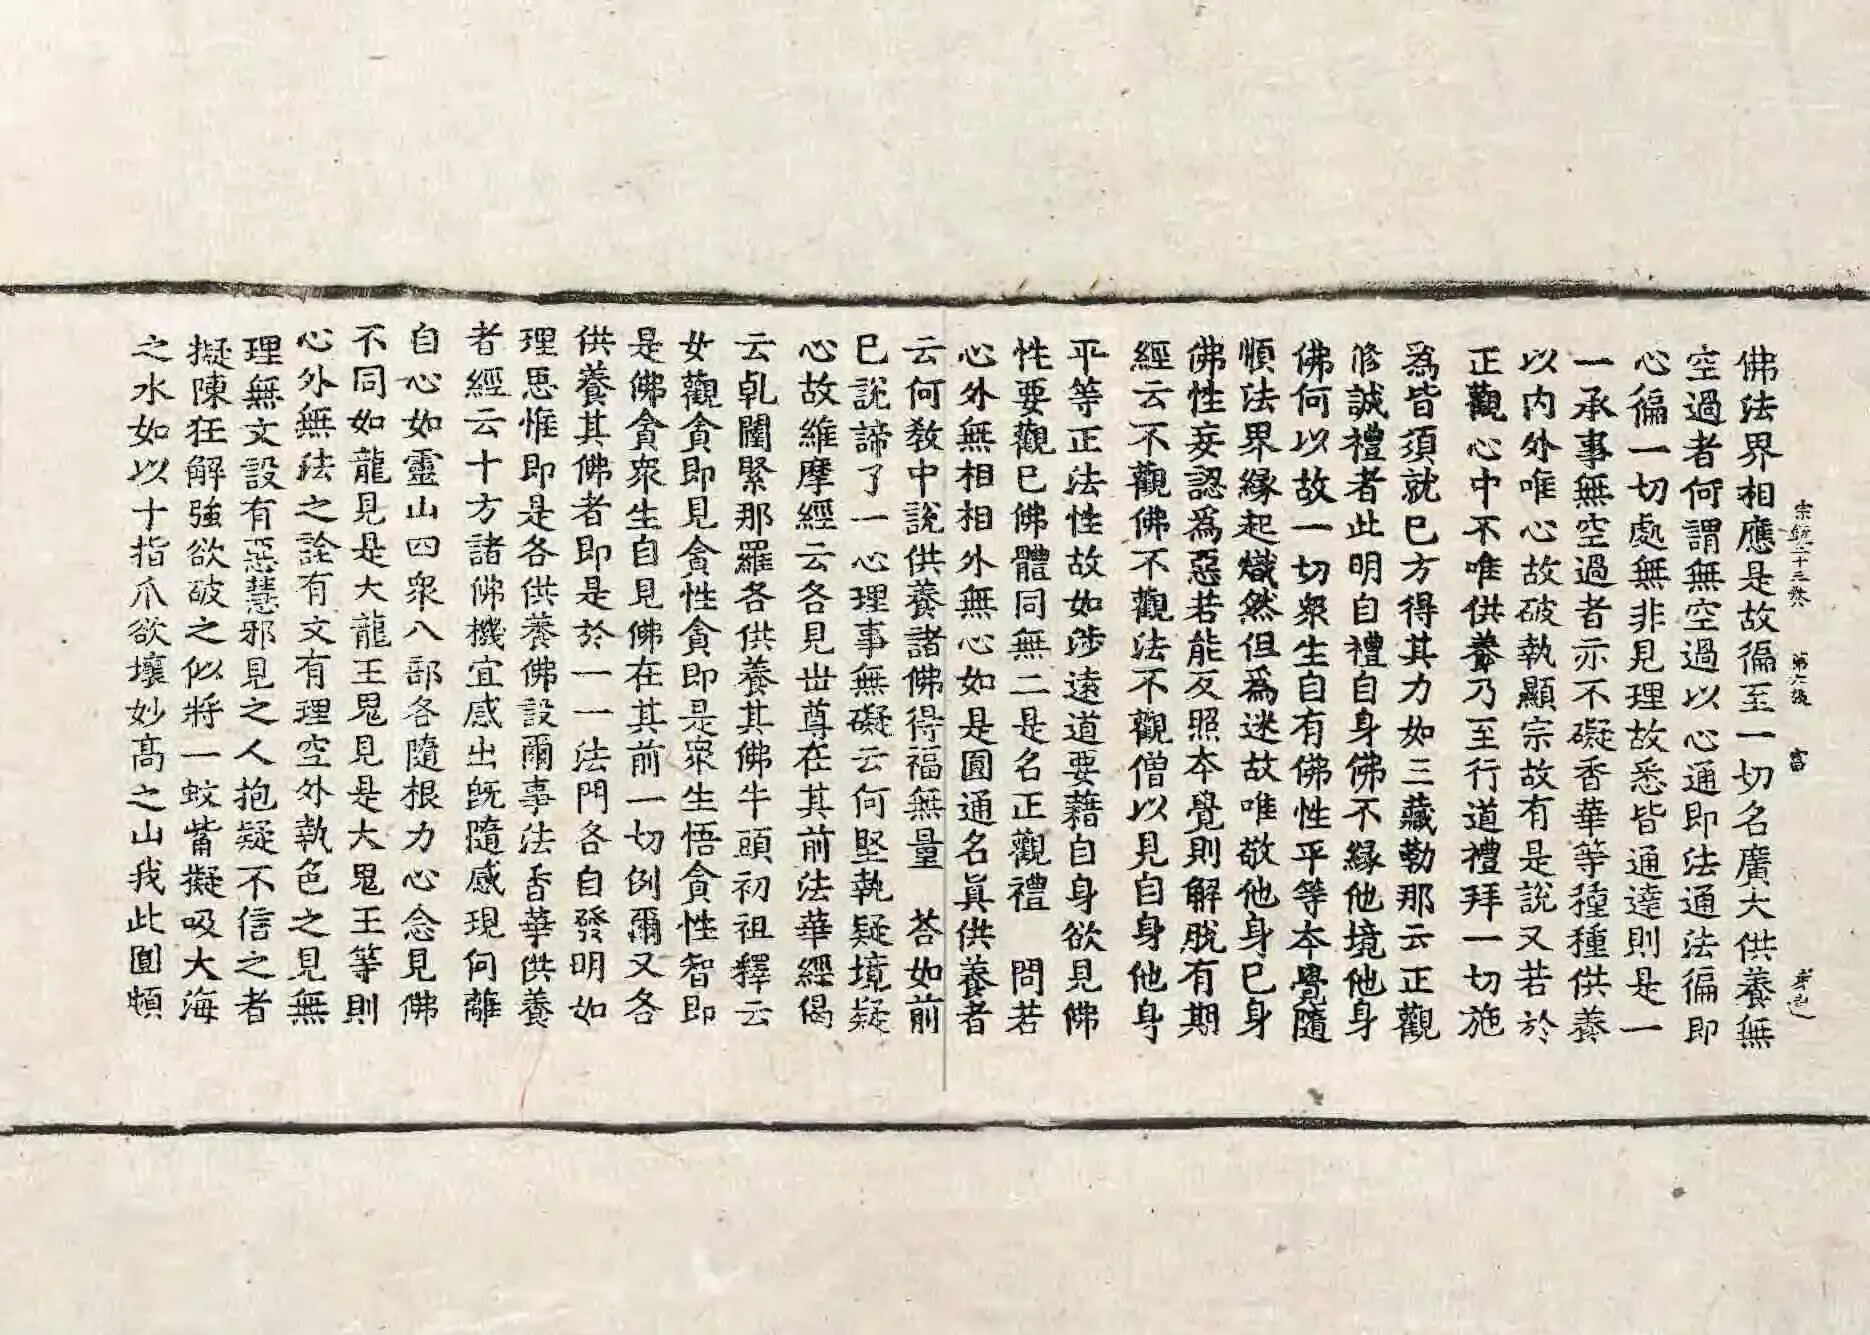 佛法界相應是故徧至一切名廣大供養無
空過者何謂無空過以心通即法通法徧即
心徧一切處無非見理故悉皆通達則是一
一承事無空過者亦不礙香華等種種供養
以內外唯心故破執顯宗故有是說又若於
正觀心中不唯供養乃至行道禮拜一切施
為皆須就巳方得其力如三藏勒那云正觀
修誠禮者此明自禮自身佛不緣他境他身
佛何以故一切眾生自有佛性平等本覺隨
順法界緣起熾然但為迷故唯敬他身巳身
佛性妄認為惡若能反照本覺則解脫有期
經云不觀佛不觀法不觀僧以見自身他身
平等正法性故如涉遠道要藉自身欲見佛
性要觀巳佛體同無二是名正觀禮　問若
心外無相相外無心如是圓通名真供養者
云何教中說供養諸佛得福無量　荅如前
巳說諦了一心理事無礙云何堅執疑境疑
心故維摩經云各見世尊在其前法華經偈
云乹闥緊那羅各供養其佛牛頭初祖釋云
女觀貪即見貪性貪即是眾生悟貪性智即
是佛貪眾生自見佛在其前一切例爾又各
供養其佛者即是於一一法門各自發明如
理思惟即是各供養佛設爾事法香華供養
者經云十方諸佛機宜感出旣隨感現何離
自心如靈山四眾八部各隨根力心念見佛
不同如龍見是大龍王鬼見是大鬼王等則
心外無法之詮有文有理空外執色之見無
理無文設有惡慧邪見之人抱疑不信之者
擬陳狂解強欲破之似將一蚊觜擬吸大海
之水如以十指爪欲壞妙高之山我此圓頓
宗鏡二十三卷　第六張　富